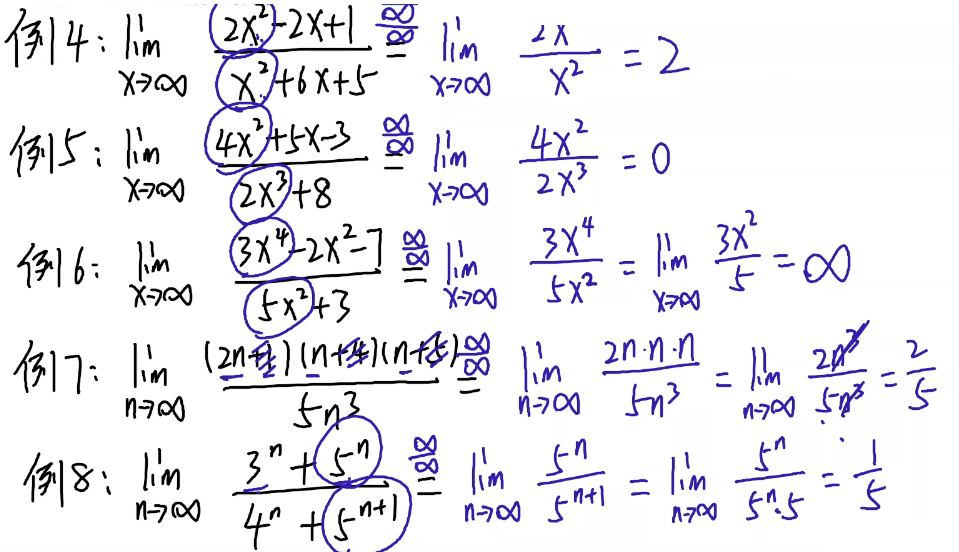 例4: lim x→∞ (2x²-2x+1)/(x²+6x+5) =^(∞/∞) lim x→∞ 2x/x² = 2
例5: lim x→∞ (4x²+5x-3)/(2x³+8) =^(∞/∞) lim x→∞ 4x²/2x³ = 0
例6: lim x→∞ (3x⁴-2x²-7)/(5x²+3) =^(∞/∞) lim x→∞ 3x⁴/5x² = lim x→∞ 3x²/5 = ∞
例7: lim n→∞ (2n+1)(n+4)(n+5)/5n³ =^(∞/∞) lim n→∞ 2n·n·n/5n³ = lim n→∞ 2n³/5n³ = 2/5
例8: lim n→∞ (3ⁿ+5ⁿ)/(4ⁿ+5ⁿ⁺¹) =^(∞/∞) lim n→∞ 5ⁿ/5ⁿ⁺¹ = lim n→∞ 5ⁿ/5ⁿ·5 = 1/5